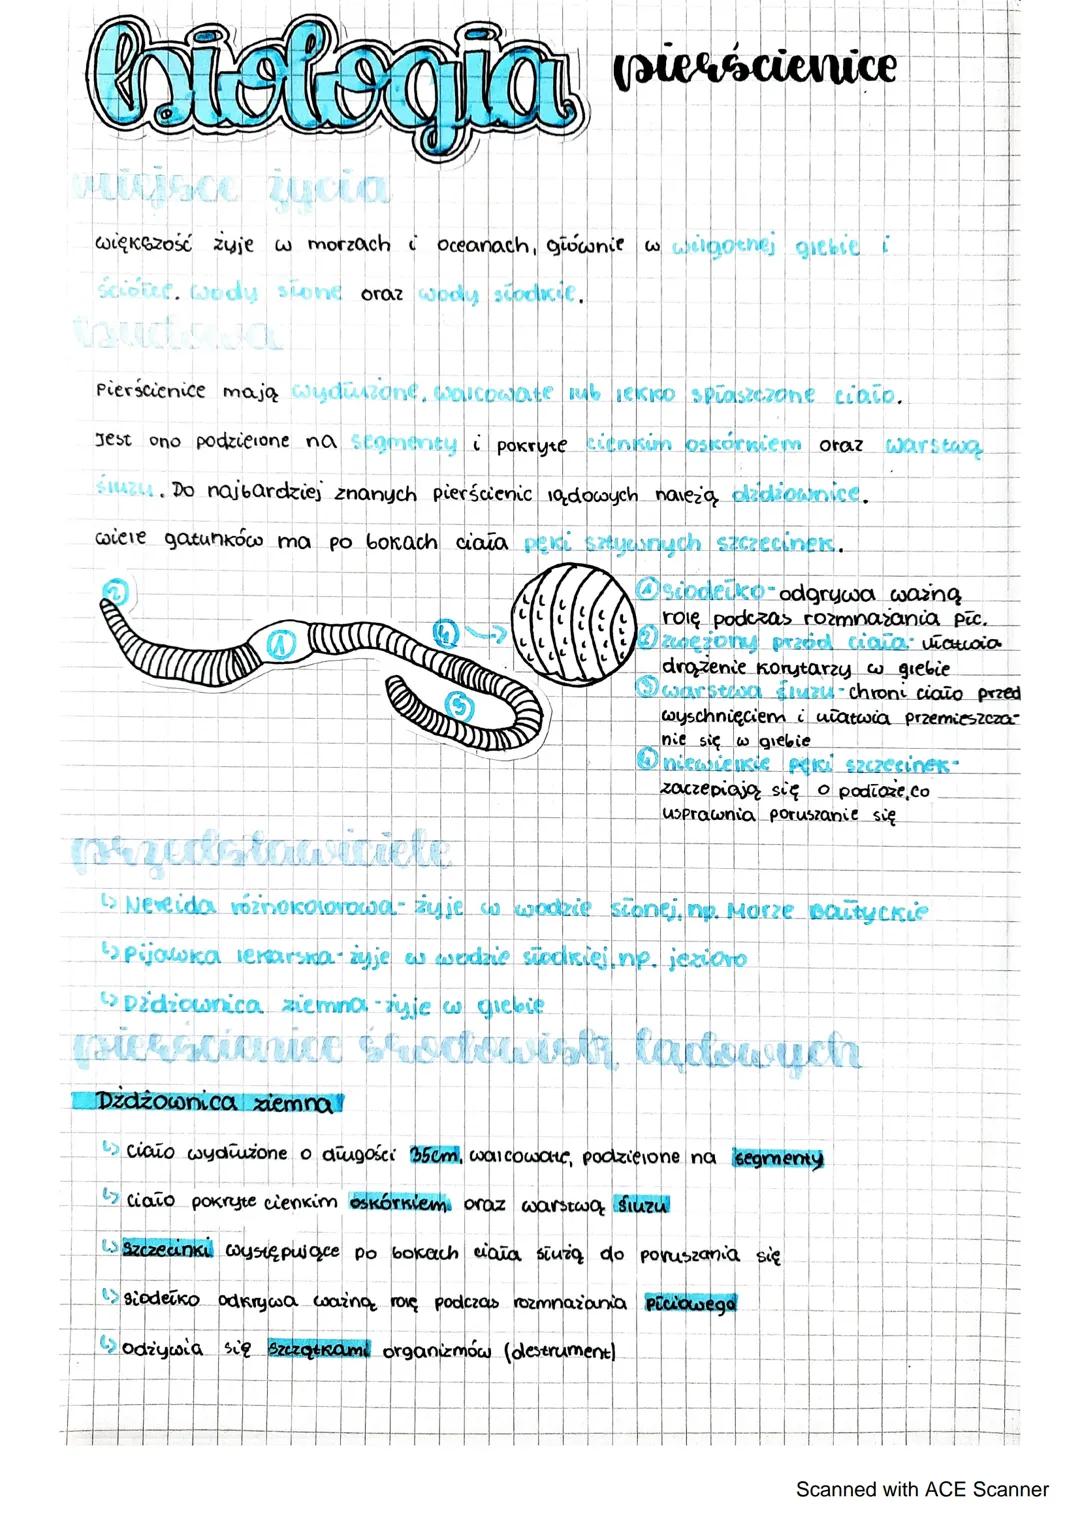 biologia pierścienice
miejsce życia
większość żyje w morzach i oceanach, głównie w wilgotnej glebie i
ściółce. Wody słone oraz wody słodkie.
budowa
Pierścienice mają wydłużone, walcowate lub lekko spłaszczone ciało.
Jest ono podzielone na segmenty i pokryte cienkim oskórkiem oraz warstwą
śluzu. Do najbardziej znanych pierścienic lądowych należą dżdżownice.
wiele gatunków ma po bokach ciała pęki sztywnych szczecinek.
2
1
4
3
1 siodełko - odgrywa ważną
rolę podczas rozmnażania płc.
2 zwężony przód ciała - ułatwia
drążenie korytarzy w glebie
3 warstwa śluzu - chroni ciało przed
wyschnięciem i ułatwia przemieszcza-
nie się w glebie
4 niewielkie pęki szczecinek -
zaczepiają się o podłoże, co
usprawnia poruszanie się
przedstawiciele
↳ Nereida różnokolorowa - żyje w wodzie słonej, np. Morze Bałtyckie
↳ Pijawka lekarska - żyje w wodzie słodkiej, np. jezioro
↳ Dżdżownica ziemna - żyje w glebie
pierścienice środowisk lądowych
Dżdżownica ziemna
↳ ciało wydłużone o długości 35cm, walcowate, podzielone na segmenty
↳ ciało pokryte cienkim oskórkiem oraz warstwą śluzu
↳ szczecinki występujące po bokach ciała służą do poruszania się
↳ siodełko odkrywa ważną rolę podczas rozmnażania płciowego
↳ odżywia się szczątkami organizmów (destrument)
Scanned with ACE Scanner